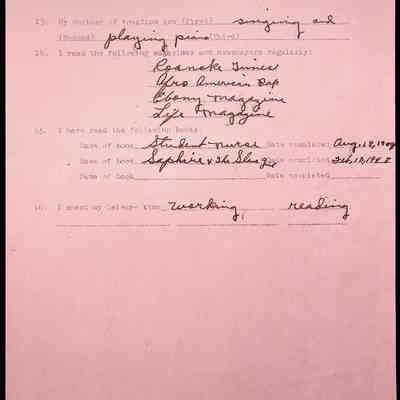 13. My hobbies of are (First) singing and
(Second) playing piano (Third)
14. I read the following magazines and newspapers regularly:
Roanoke Times
Afro American Pap
Ebony Magazine
Life Magazine
15. I have read the following books:
Name of book Student Nurse Date completed Aug. 18,
Name of book Saphire & The Date completed Feb. 10,
Name of book Date completed
16. I spend my leisure time working, reading